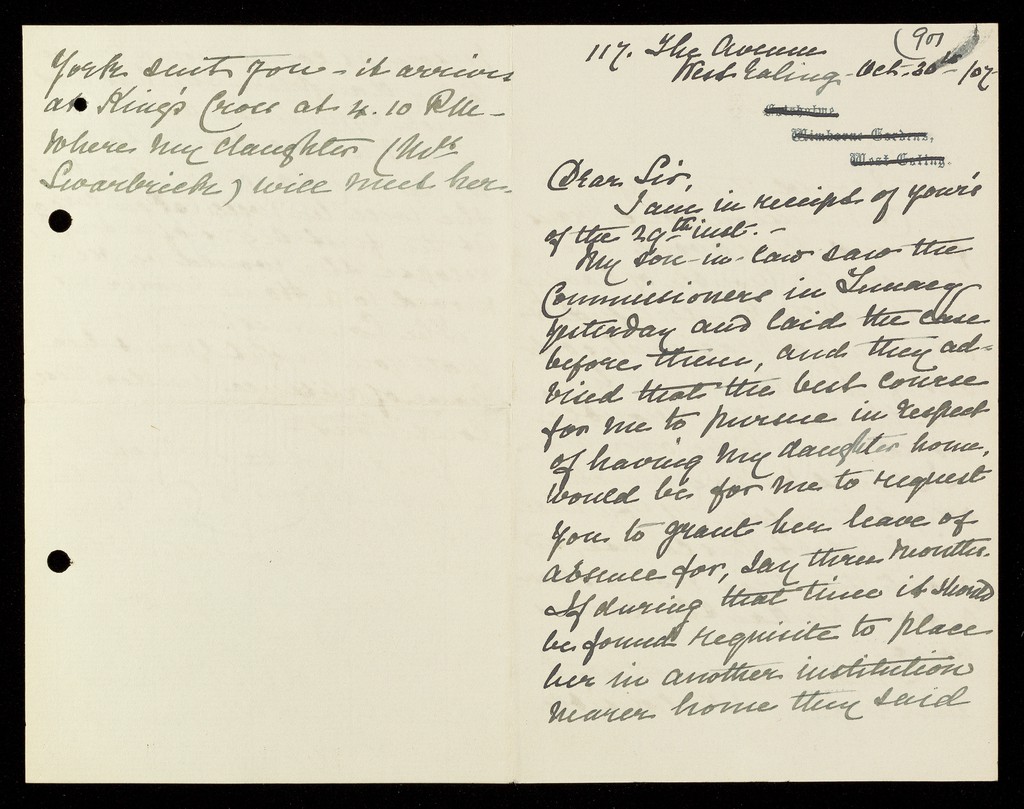 York sent you - it arrives
at King's Cross at 4.10 P.M -
where my daughter (Mrs
Swarbrick) will meet her.
(90)
117. The Avenue
West Ealing. Oct. 30th /07
Wimborne Gardens,
West Ealing.
Dear Sir,
I am in receipt of your's
of the 29th inst. -
My son-in-law saw the
Commissioners in Lunacy
yesterday and laid the case
before them, and they ad-
vised that the best course
for me to pursue in respect
of having my daughter home,
would be for me to request
you to grant her leave of
absence for, say three months.
If during that time it should
be found requisite to place
her in another institution
nearer home they said